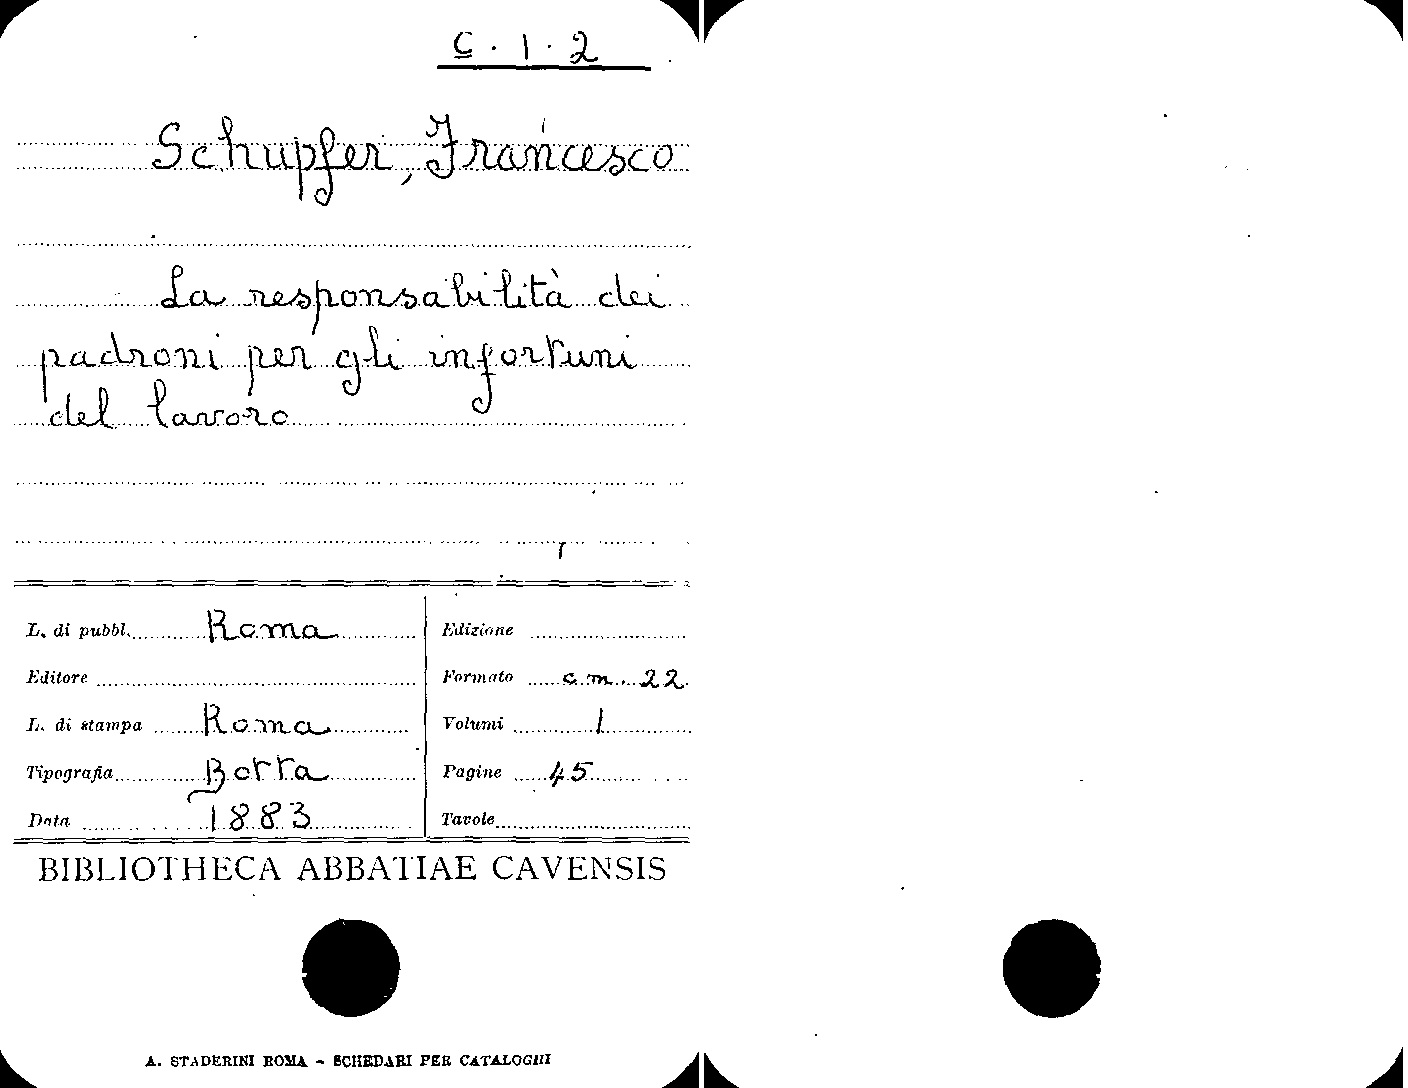 C. 1. 2
Schupfer, Francesco
La responsabilità dei
padroni per gli infortuni
del lavoro
L. di pubbl. Roma
Editore
L. di stampa Roma
Tipografia Botta
Data 1883
Edizione
Formato cm. 22
Volumi 1
Pagine 45
Tavole
BIBLIOTHECA ABBATIAE CAVENSIS
A. STADERINI ROMA - SCHEDARI PER CATALOGHI